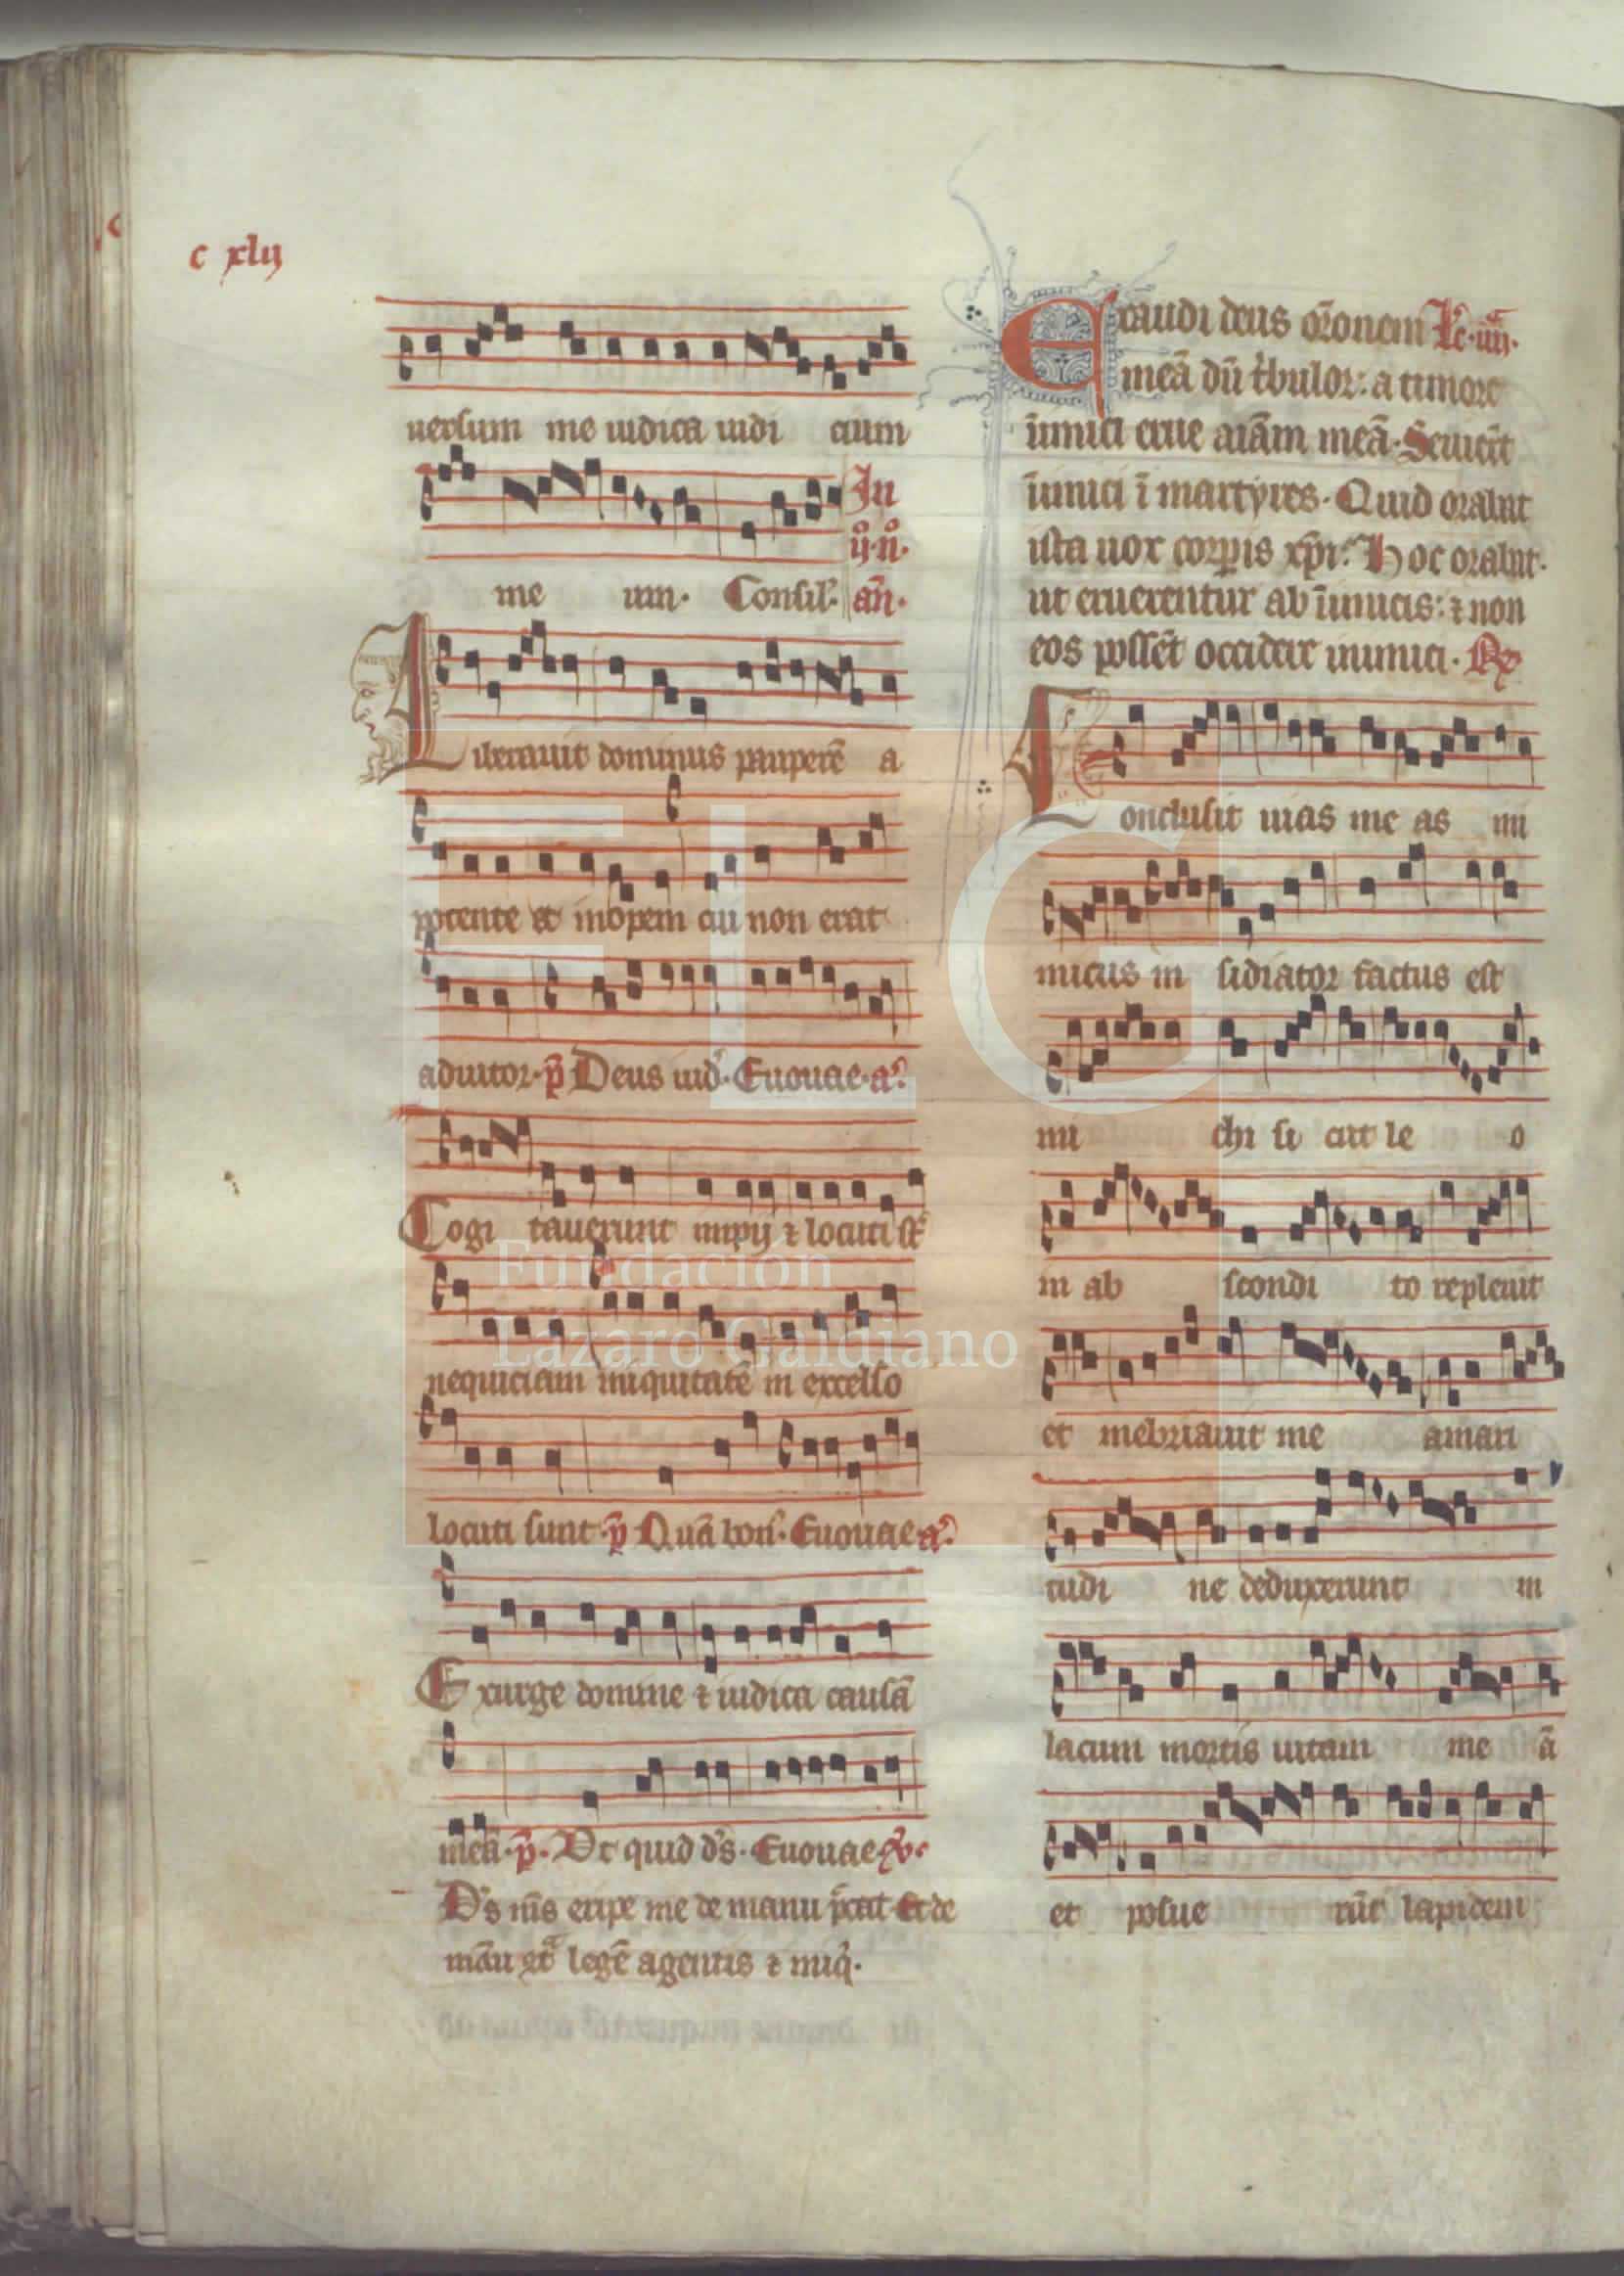 c xlij
uersum me iudica iudi cium
me um. Consil'. añ.
In
ij. n.
Liberauit dominus pauperē a
potente et inopem cui non erat
adiutor. p̄ Deus iud'. Euouae. a.
Cogi tauerunt impij ⁊ locuti st̄
nequiciam iniquitatē in excelso
locuti sunt. p̄ Quā bon'. Euouae. a.
Exurge domine ⁊ iudica causā
meā. p̄. Ut quid d's. Euouae. v.
D's m̄s eripe me de manu p̄cat. Et de
legē agentis ⁊ iniq'.
Exaudi deus or̄onem Lc. iiij.
meā dū t'bulor: a timore
īimici erue aīam meā. Seuier̄t
īimici ī martyres. Quid orabat
ista uox corp̄is xp̄i. Hoc orabat.
ut eruerentur ab īimicis: ⁊ non
eos possēt occidere inimici. R̄
Conclusit uias me as ini
micus in sidiator factus est
mi chi si cut le o
in ab scondi to repleuit
et inebriauit me amari
tudi ne deduxerunt in
lacum mortis uitam me ā
et posue rūt lapidem
FLG
Fundación
Lázaro Galdiano